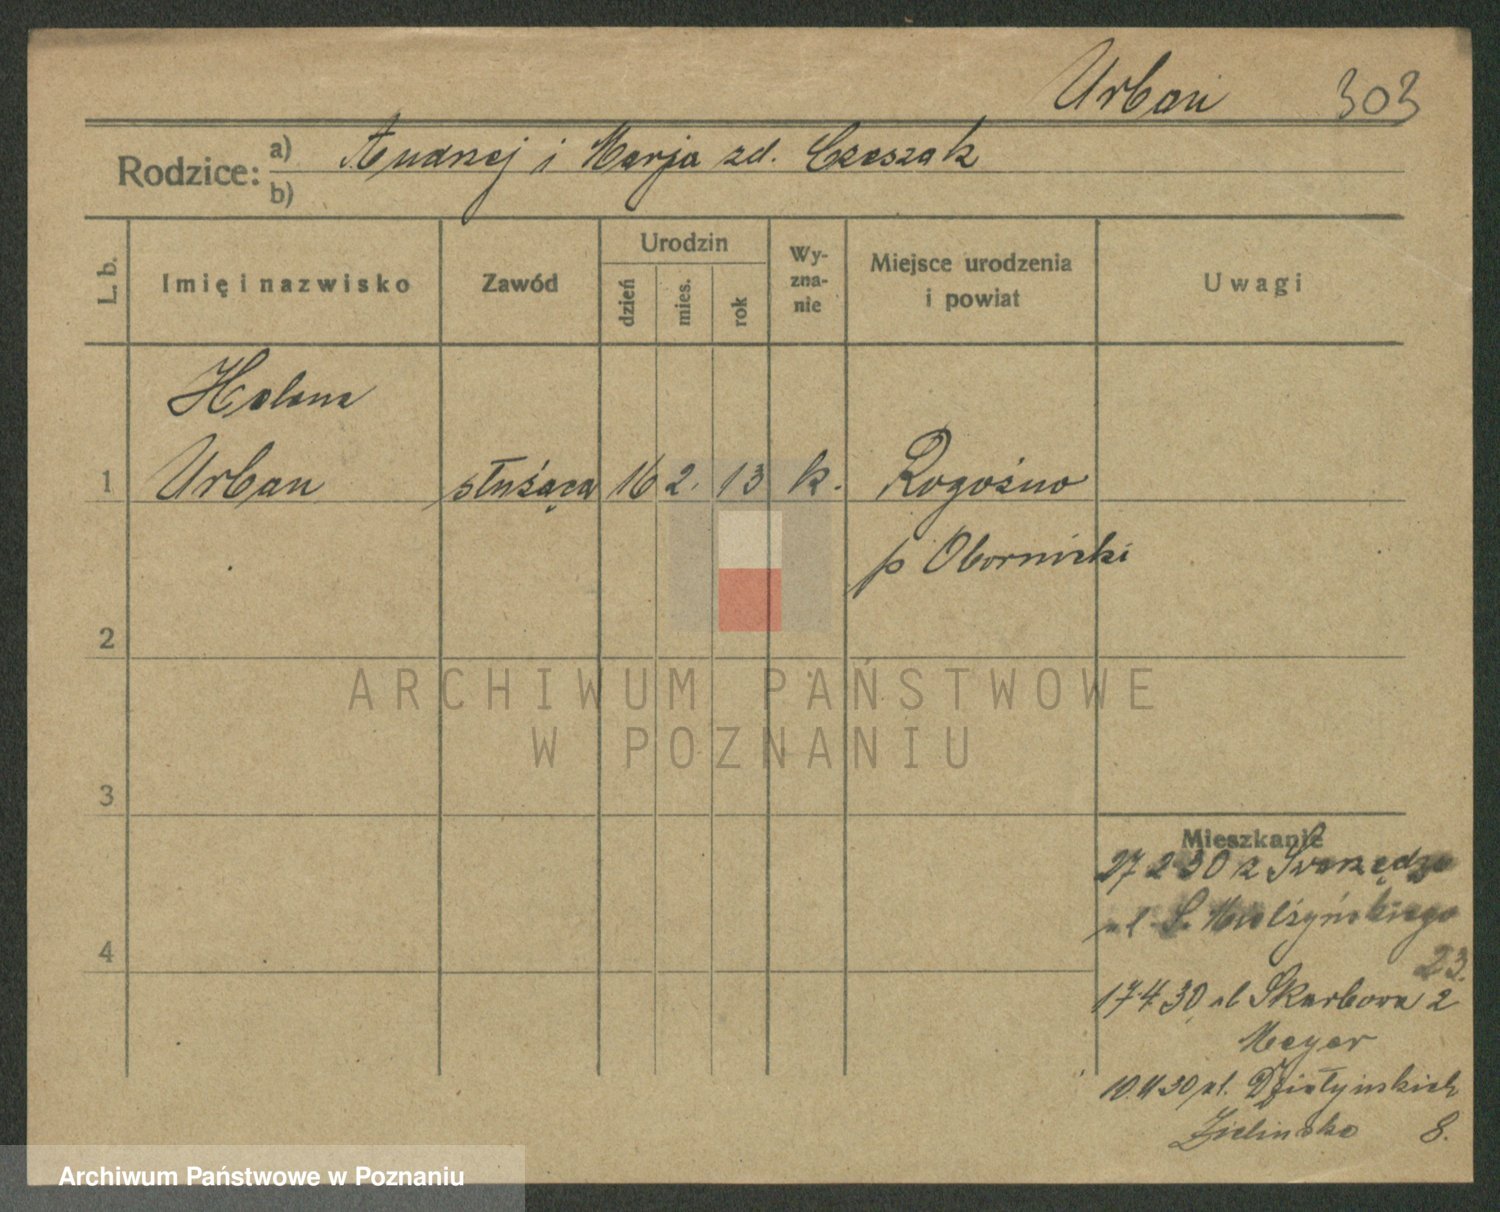 Urban 303
Rodzice: a) Andrzej i Marja zd. Czeszak
b)
L. b. Imię i nazwisko Zawód Urodzin dzień mies. rok Wy-zna-nie Miejsce urodzenia i powiat Uwagi
Helena
1 Urban służąca 16 2. 13 k. Rogoźno
p Obornicki
2
ARCHIWUM PAŃSTWOWE
W POZNANIU
3
Mieszkanie
27 2 30 z Swarzędza
ul. S.
23.
4
17.4.30 ul Skarbowa 2
Meyer
30 ul. Działyńskich
Zielińska 8.
Archiwum Państwowe w Poznaniu